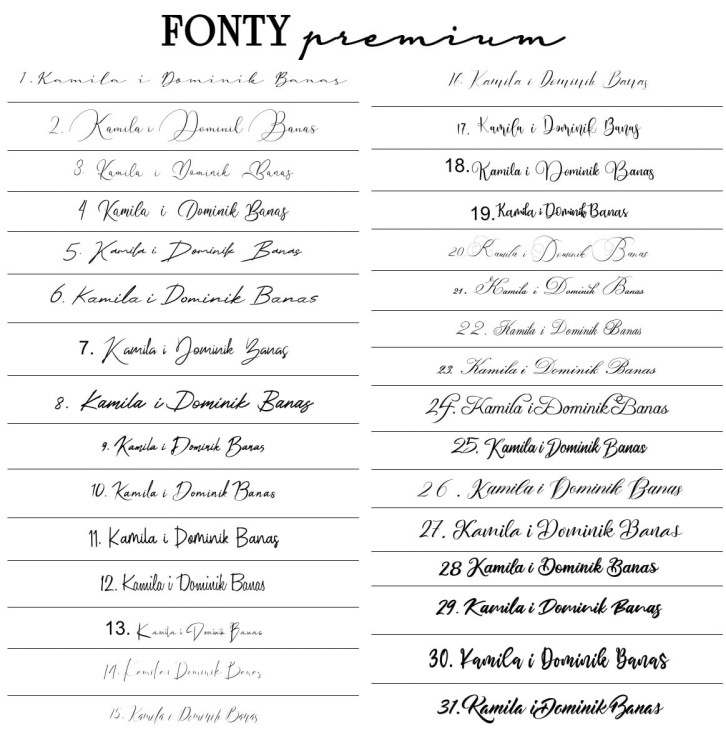 FONTY premium
1. Kamila i Dominik Banas
2. Kamila i Dominik Banas
3. Kamila i Dominik Banas
4 Kamila i Dominik Banas
5. Kamila i Dominik Banas
6. Kamila i Dominik Banas
7. Kamila i Dominik Banas
8. Kamila i Dominik Banas
9. Kamila i Dominik Banas
10. Kamila i Dominik Banas
11. Kamila i Dominik Banas
12. Kamila i Dominik Banas
13. Kamila i Dominik Banas
14. Kamila i Dominik Banas
15. Kamila i Dominik Banas
16. Kamila i Dominik Banas
17. Kamila i Dominik Banas
18. Kamila i Dominik Banas
19. Kamila i Dominik Banas
20 Kamila i Dominik Banas
21. Kamila i Dominik Banas
22. Kamila i Dominik Banas
23. Kamila i Dominik Banas
24. Kamila i Dominik Banas
25. Kamila i Dominik Banas
26. Kamila i Dominik Banas
27. Kamila i Dominik Banas
28 Kamila i Dominik Banas
29. Kamila i Dominik Banas
30. Kamila i Dominik Banas
31. Kamila i Dominik Banas